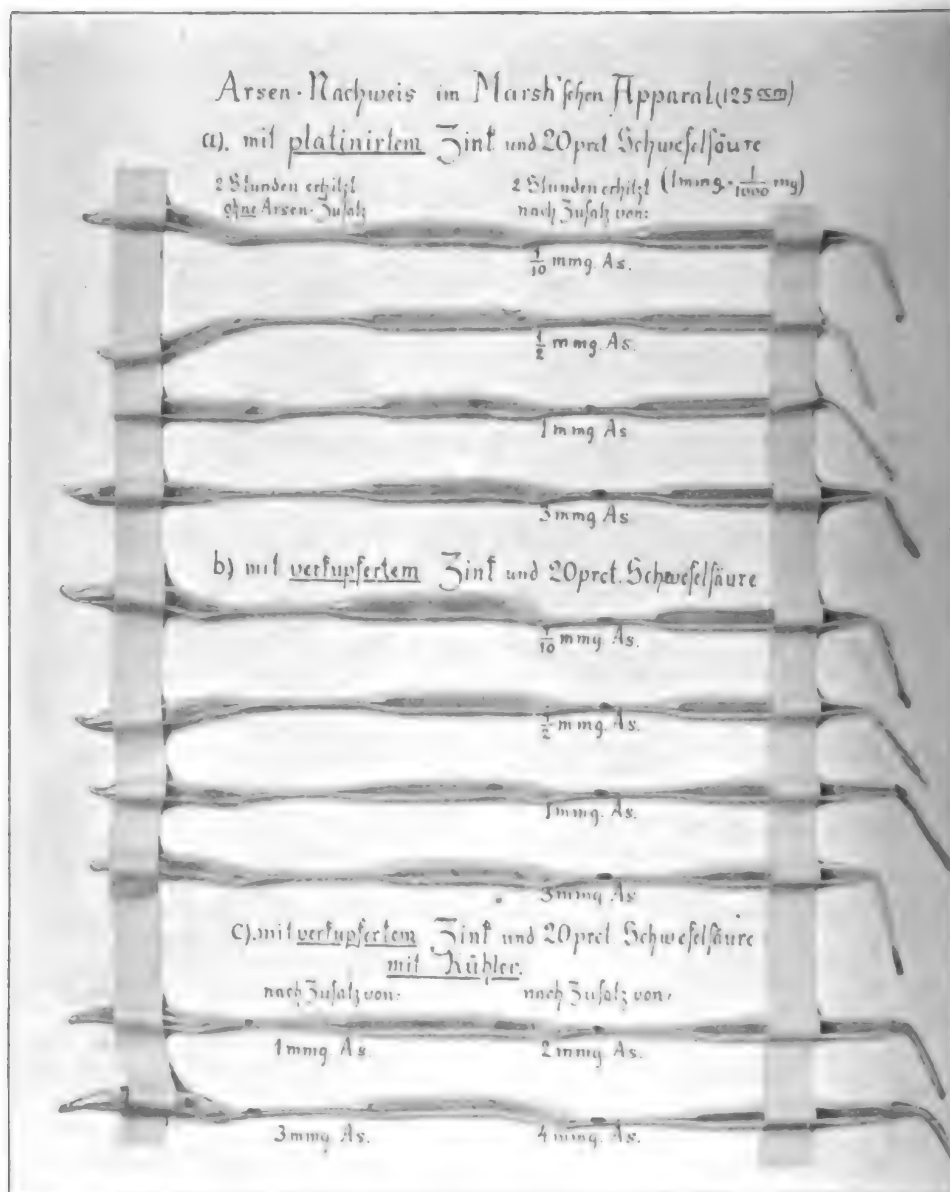 Arsen-Nachweis im Marsh'schen Apparat (125 ccm)
a). mit platinirtem Zink und 20 prct Schwefelsäure
2 Stunden erhitzt 2 Stunden erhitzt (1 mmg = 1/1000 mg)
ohne Arsen-Zusatz nach Zusatz von:
1/10 mmg. As.
1/2 mmg. As.
1 mmg As
3 mmg As
b) mit verkupfertem Zink und 20 prct. Schwefelsäure
1/10 mmg As.
1/2 mmg. As.
1 mmg. As.
3 mmg As
c). mit verkupfertem Zink und 20 prct. Schwefelsäure
mit Kühler.
nach Zusatz von: nach Zusatz von:
1 mmg As. 2 mmg As.
3 mmg As. 4 mmg. As.